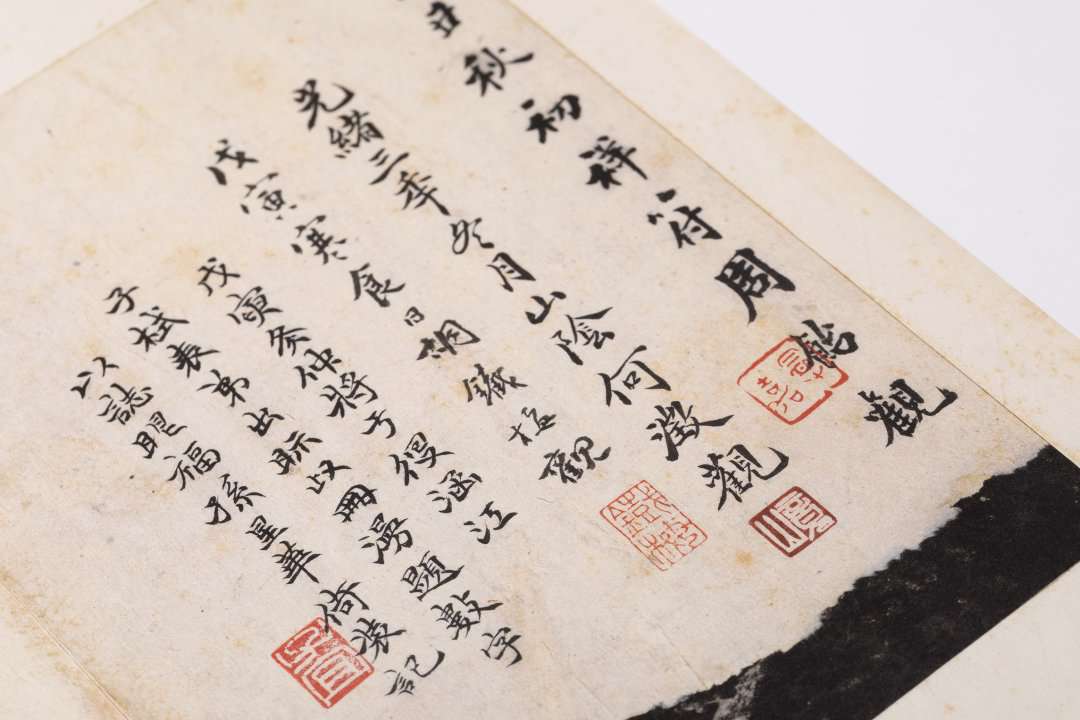 丑秋初祥符周觀
光緒三秊冬月山陰何澂觀
戊寅寒食日胡鐵觀
戊寅冬仲將于役涵江
子栻表弟出眎此冊漫題數字
以誌眼福孫星華倚裝記